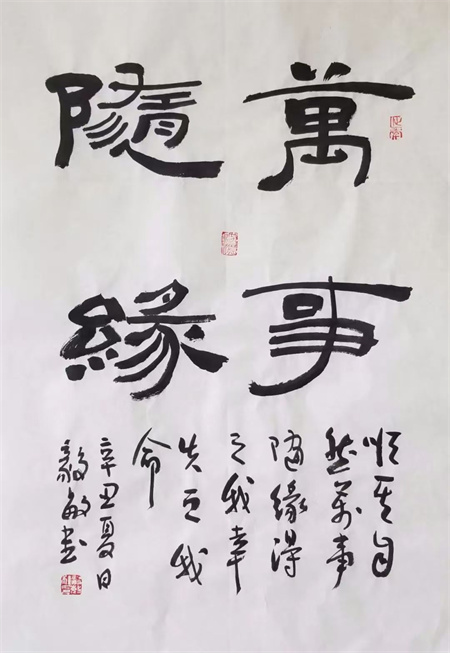 萬事
隨緣
順其自
然萬事
随缘得
之我幸
失之我
命
辛丑夏日
毅敏书